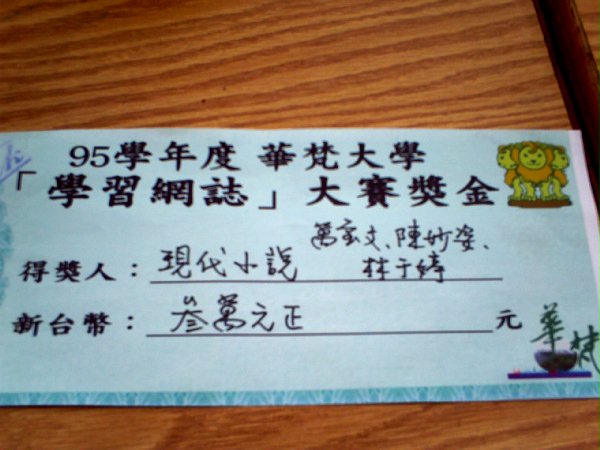 95學年度 華梵大學
「學習網誌」大賽獎金
萬金文、陳妙姿、
得獎人：現代小說 林于婷
新台幣：叁萬元正 元
華梵